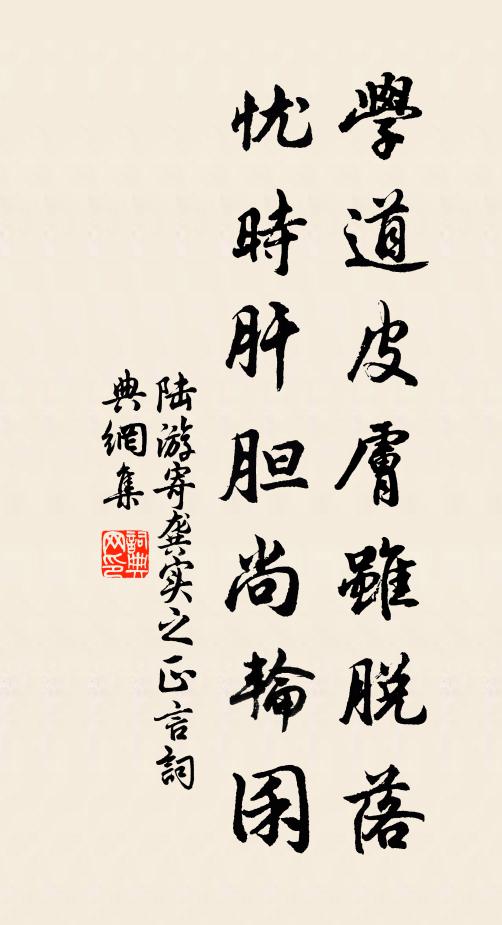 學道皮膚雖脱落
忧時肝胆尚輪囷
陆游寄龚实之正言詞
典網集
詞典网印